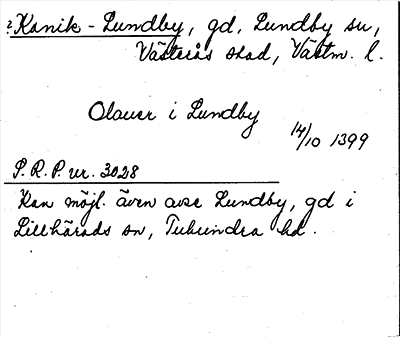 ? Kanik - Lundby, gd, Lundby sn,
Västerås stad, Västm. l.
Olauer i Lundby
14/10 1399
S.R.P. nr. 3028
Kan möjl. även avse Lundby, gd i
Lillhärads sn, Tuhundra hd.